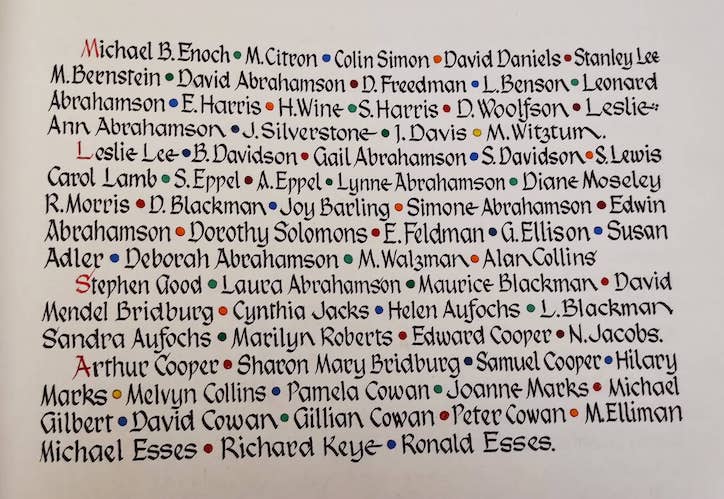 Michael B. Enoch • M. Citron • Colin Simon • David Daniels • Stanley Lee
M. Bernstein • David Abrahamson • D. Freedman • L. Benson • Leonard
Abrahamson • E. Harris • H. Wine • S. Harris • D. Woolfson • Leslie-
Ann Abrahamson • J. Silverstone • J. Davis • M. Witztum.
Leslie Lee • B. Davidson • Gail Abrahamson • S. Davidson • S. Lewis
Carol Lamb • S. Eppel • A. Eppel • Lynne Abrahamson • Diane Moseley
R. Morris • D. Blackman • Joy Barling • Simone Abrahamson • Edwin
Abrahamson • Dorothy Solomons • E. Feldman • G. Ellison • Susan
Adler • Deborah Abrahamson • M. Walzman • Alan Collins
Stephen Good • Laura Abrahamson • Maurice Blackman • David
Mendel Bridburg • Cynthia Jacks • Helen Aufochs • L. Blackman
Sandra Aufochs • Marilyn Roberts • Edward Cooper • N. Jacobs.
Arthur Cooper • Sharon Mary Bridburg • Samuel Cooper • Hilary
Marks • Melvyn Collins • Pamela Cowan • Joanne Marks • Michael
Gilbert • David Cowan • Gillian Cowan • Peter Cowan • M. Elliman
Michael Esses • Richard Keye • Ronald Esses.